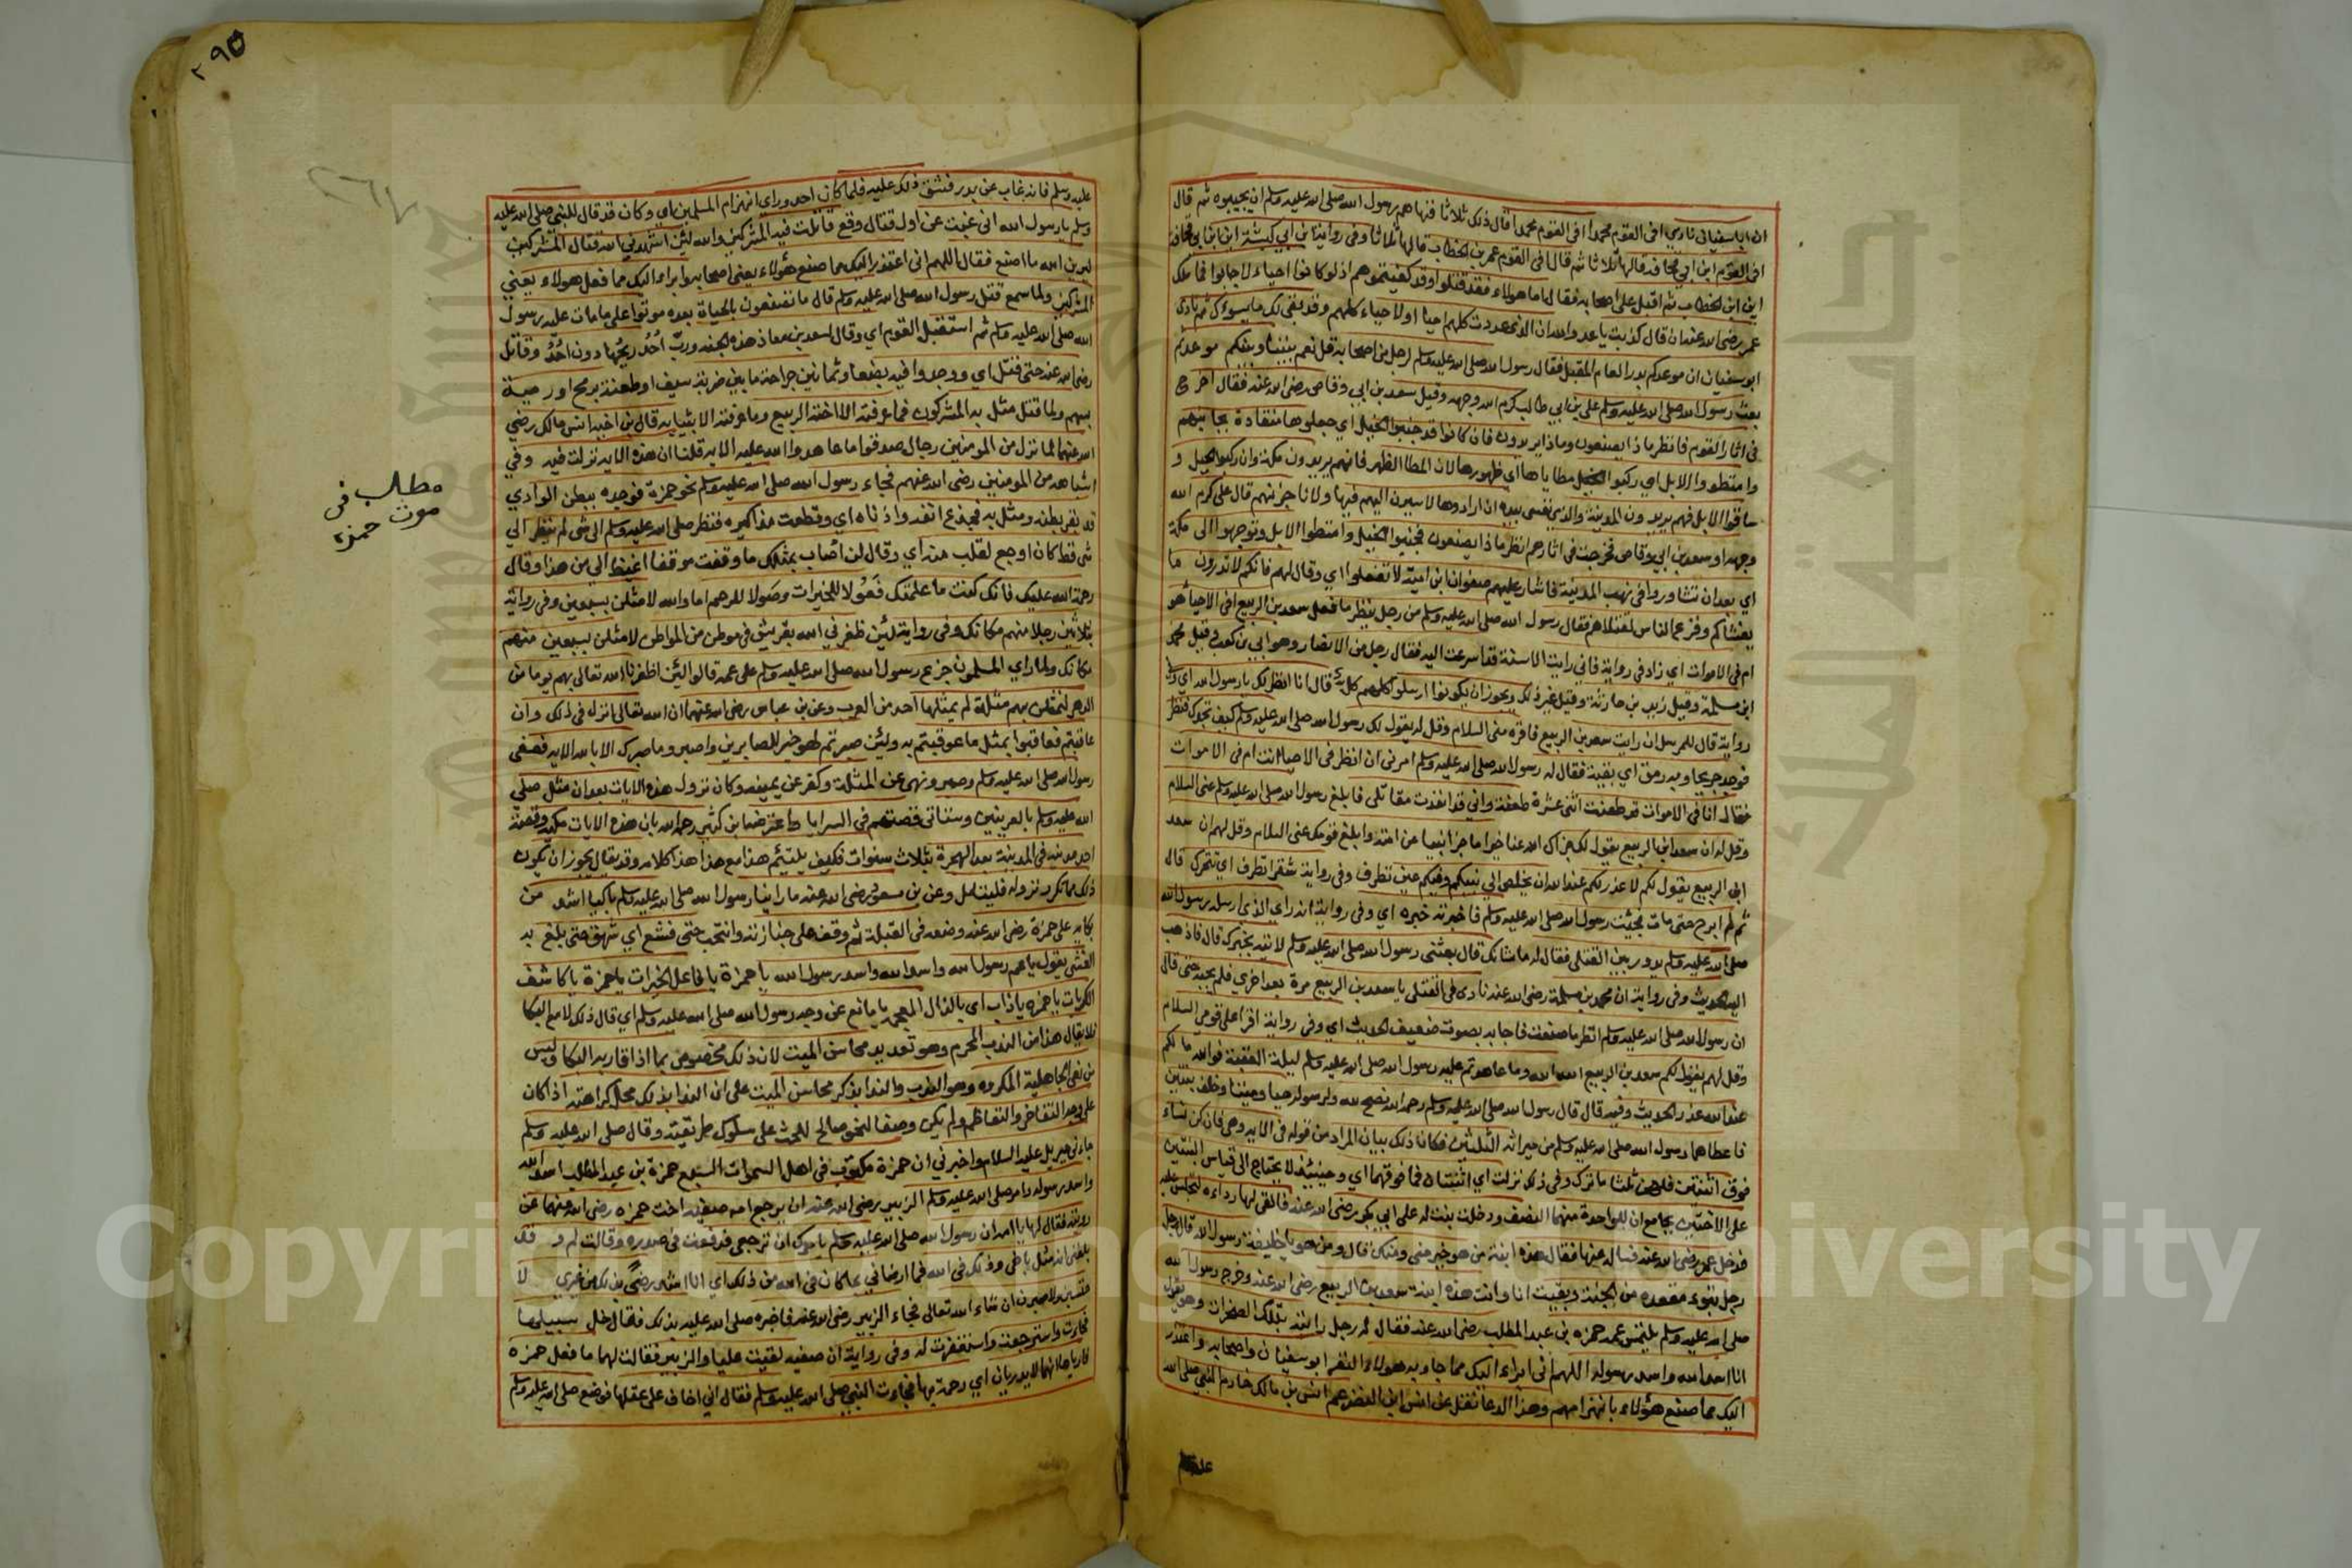 ان ابا سفيان نادي افي القوم محمد افي القوم محمد قال ذلك ثلاثا فنهاهم رسول الله صلى الله عليه وسلم ان يجيبوه ثم قال
افي القوم ابن ابي قحافة قالها ثلاثا ثم قال افي القوم عمر بن الخطاب قالها ثلاثا وفي رواية اين ابن ابي كبشة اين ابن ابي قحافة
اين ابن الخطاب ثم اقبل على اصحابه فقال اما هولاء فقد قتلوا وقد كفيتموهم اذ لو كانوا احياء لاجابوا فما ملك
عمر رضي الله عنه ان قال كذبت يا عدو الله ان الذي عددت كلهم احيا او لاحياء كلهم وقد بقي لك ما يسوءك ثم نادى
ابو سفيان ان موعدكم بدر العام المقبل فقال رسول الله صلى الله عليه وسلم لرجل من اصحابه قل نعم بيننا وبينكم موعد ثم
بعث رسول الله صلى الله عليه وسلم علي بن ابي طالب كرم الله وجهه وقيل سعد بن ابي وقاص رضي الله عنه فقال اخرج
في اثار القوم فانظر ماذا يصنعون وماذا يريدون فان كانوا قد جنبوا الخيل اي جعلوها منقادة بجانبهم
وامتطوا الابل اي ركبوا مطاياها اي ظهورها لان المطا الظهر فانهم يريدون مكة وان ركبوا الخيل و
ساقوا الابل فهم يريدون المدينة والذي نفسي بيده ان ارادوها لاسيرن اليهم فيها ولاناجزنهم قال علي كرم الله
وجهه او سعد بن ابي وقاص فخرجت في اثارهم انظر ماذا يصنعون فجنبوا الخيل وامتطوا الابل وتوجهوا الى مكة
اي بعد ان تشاوروا في نهب المدينة فاشار عليهم صفوان ابن امية لا تفعلوا اي وقال لهم فانكم لا تدرون ما
يغشاكم وفزع الناس لقتلاهم فقال رسول الله صلى الله عليه وسلم من رجل ينظر ما فعل سعد بن الربيع افي الاحيا هو
ام في الاموات اي زاد في رواية فاني رايت الاسنة قد اسرعت اليه فقال رجل من الانصار وهو ابي بن كعب وقيل محمد
ابن مسلمة وقيل زيد بن حارثة وقيل غير ذلك ويجوز ان يكونوا ارسلوا كلهم قال انا انظر لك يا رسول الله اي وفي
رواية قال للمرسل ان رايت سعد بن الربيع فاقره مني السلام وقل له يقول لك رسول الله صلى الله عليه وسلم كيف تجدك فنظر
فوجده جريحا وبه رمق اي بقية فقال له رسول الله صلى الله عليه وسلم امرني ان انظر في الاحيا انت ام في الاموات
فقال انا في الاموات قد طعنت اثنى عشرة طعنة واني قد انفذت مقاتلي فابلغ رسول الله صلى الله عليه وسلم عني السلام
وقل له ان سعد ابن الربيع يقول لك جزاك الله عنا خيرا ما جزا نبيا عن امته وابلغ قومك عني السلام وقل لهم ان سعد
ابن الربيع يقول لكم لا عذر لكم عند الله ان يخلص الي نبيكم وفيكم عين تطرف وفي رواية شفر تطرف اي تتحرك قال
ثم لم ابرح حتى مات فجئت رسول الله صلى الله عليه وسلم فاخبرته خبره اي وفي رواية انه راي الذي ارسله رسول الله
صلى الله عليه وسلم يدور بين القتلى فقال له ما شانك قال بعثني رسول الله صلى الله عليه وسلم لاتيه بخبرك قال فاذهب
اليه الحديث وفي رواية ان محمد بن مسلمة رضي الله عنه نادى في القتلى يا سعد بن الربيع مرة بعد اخرى فلم يجبه حتى قال
ان رسول الله صلى الله عليه وسلم انظر ما صنعت فاجابه بصوت ضعيف الحديث اي وفي رواية اقرا على قومي السلام
وقل لهم يقول لكم سعد بن الربيع الله الله وما عاهدتم عليه رسول الله صلى الله عليه وسلم ليلة العقبة فوالله ما لكم
عند الله عذر الحديث وفيه قال قال رسول الله صلى الله عليه وسلم رحمه الله نصح لله ولرسوله حيا وميتا وخلف بنتين
فاعطاهما رسول الله صلى الله عليه وسلم من ميراثه الثلثين فكان ذلك بيان المراد من قوله في الاية وهي فان كن نساء
فوق اثنتين فلهن ثلثا ما ترك وفي ذلك نزلت اي اثنتان فما فوقهما اي وحينئذ لا يحتاج الى قياس البنتين
على الاختين بجامع ان للواحدة منهما النصف ودخلت بنت له على ابي بكر رضي الله عنه فالقى لها رداءه لتجلس عليه
فدخل عمر رضي الله عنه فسال عنها فقال هذه ابنة من هو خير مني ومنك قال ومن هو يا خليفة رسول الله قال رجل
رجل تبوء مقعده من الجنة وبقيت انا وانت هذه ابنة سعد بن الربيع رضي الله عنه وخرج رسول الله
صلى الله عليه وسلم يلتمس عمه حمزة بن عبد المطلب رضي الله عنه فقال له رجل رايته بتلك الصخرات وهو يقول
انا اسد الله واسد رسوله اللهم اني ابراء اليك مما جاء به هولاء النفر ابو سفيان واصحابه واعتذر
اليك مما صنع هؤلاء بانهزامهم وهذا الدعا نقل عن انس ابن النضر عم انس بن مالك خادم النبي صلى الله
عليه
٢٩٥
عليه وسلم فانه غاب عن بدر فشق ذلك عليه فلما كان احد وراي انهزام المسلمين اي وكان قد قال للنبي صلى الله عليه
وسلم يا رسول الله اني غبت عن اول قتال وقع قاتلت فيه المشركين والله لئن اشهدني الله قتال المشركين
ليرين الله ما اصنع فقال اللهم اني اعتذر اليك مما صنع هؤلاء يعني اصحابه وابراء اليك مما فعل هولاء يعني
المشركين ولما سمع قتل رسول الله صلى الله عليه وسلم قال ما تصنعون بالحياة بعده موتوا على ما مات عليه رسول
الله صلى الله عليه وسلم ثم استقبل القوم اي وقال لسعد بن معاذ هذه الجنة ورب احد ريحها دون احد وقاتل
رضي الله عنه حتى قتل اي ووجدوا فيه بضعا وثمانين جراحة ما بين ضربة سيف او طعنة برمح او رمية
بسهم ولما قتل مثل به المشركون فما عرفته الا اخته الربيع وما عرفته الا بثيابه قال بن اخيه انس بن مالك رضي
الله عنهما لما نزل من المومنين رجال صدقوا ما عاهدوا الله عليه الاية قلنا ان هذه الاية نزلت فيه وفي
اشباهه من المومنين رضي الله عنهم فجاء رسول الله صلى الله عليه وسلم نحو حمزة فوجده ببطن الوادي
قد بقر بطنه ومثل به فجدع انفه واذناه اي وقطعت مذاكيره فنظر صلى الله عليه وسلم الى شي لم ينظر الي
شي قط كان اوجع لقلبه منه اي وقال لن اصاب بمثلك ما وقفت موقفا اغيظ الي من هذا وقال
رحمة الله عليك فانك كنت ما علمتك فعولا للخيرات وصولا للرحم اما والله لامثلن بسبعين وفي رواية
بثلاثين رجلا منهم مكانك وفي رواية لئن ظفرني الله بقريش في موطن من المواطن لامثلن بسبعين منهم
مكانك ولما راي المسلمون جزع رسول الله صلى الله عليه وسلم على عمه قالوا لئن اظفرنا الله تعالى بهم يوما من
الدهر لنمثلن بهم مثلة لم يمثلها احد من العرب وعن بن عباس رضي الله عنهما ان الله تعالى انزل في ذلك وان
عاقبتم فعاقبوا بمثل ما عوقبتم به ولئن صبرتم لهو خير للصابرين واصبر وما صبرك الا بالله الاية فعفى
رسول الله صلى الله عليه وسلم وصبر ونهى عن المثلة وكفر عن يمينه وكان نزول هذه الايات بعد ان مثل صلى
الله عليه وسلم بالعرنيين وستاتي قصتهم في السرايا واعترضه ابن كثير رحمه الله بان هذه الايات مكية وقصة
احد مدنية في المدينة بعد الهجرة بثلاث سنوات فكيف يلتئم هذا مع هذا هذا كلامه وقد يقال يجوز ان يكون
ذلك مما تكرر نزوله فليتامل وعن بن مسعود رضي الله عنه ما راينا رسول الله صلى الله عليه وسلم باكيا اشد من
بكايه على حمزة رضي الله عنه وضعه في القبلة ثم وقف على جنازته وانتحب حتى نشع اي شهق حتى بلغ به
الغشي يقول يا عم رسول الله واسد الله واسد رسول الله يا حمزة يا فاعل الخيرات يا حمزة يا كاشف
الكربات يا حمزة يا ذاب اي بالذال المعجمة يا مانع عن وجه رسول الله صلى الله عليه وسلم اي قال ذلك لا مع البكا
فلا يقال هذا من الندب المحرم وهو تعديد محاسن الميت لان ذلك مخصوص بما اذا قارنه البكا وليس
من نعي الجاهلية المكروه وهو الندا بذكر محاسن الميت على ان الندا بذلك محل كراهته اذا كان
على وجه التفاخر والتعاظم ولم يكن وصفا لنحو صالح للحث على سلوك طريقته وقال صلى الله عليه وسلم
جاءني جبريل عليه السلام واخبرني ان حمزة مكتوب في اهل السموات السبع حمزة بن عبد المطلب اسد الله
واسد رسوله وامر صلى الله عليه وسلم الزبير رضي الله عنه ان يرجع امه صفية اخت حمزه رضي الله عنهما عن
رويته فقال لها يا امه ان رسول الله صلى الله عليه وسلم يامرك ان ترجعي فدفعت في صدره وقالت لم وقد
بلغني انه مثل باخي وذلك في الله فما ارضاني بما كان في الله من ذلك اي انا اشد رضي بذلك من غيري لا
حتسبن ولاصبرن ان شاء الله تعالى فجاء الزبير رضي الله عنه فاخبره صلى الله عليه وسلم بذلك فقال خل سبيلها
فجاءت واسترجعت واستغفرت له وفي رواية ان صفيه لقيت عليا والزبير فقالت لهما ما فعل حمزه
فارياها انهما لا يدريان اي رحمة بها فجاءت النبي صلى الله عليه وسلم فقال اني اخاف على عقلها فوضع صلى الله عليه وسلم
مطلب في
موت حمزه
Copyright © King Saud University